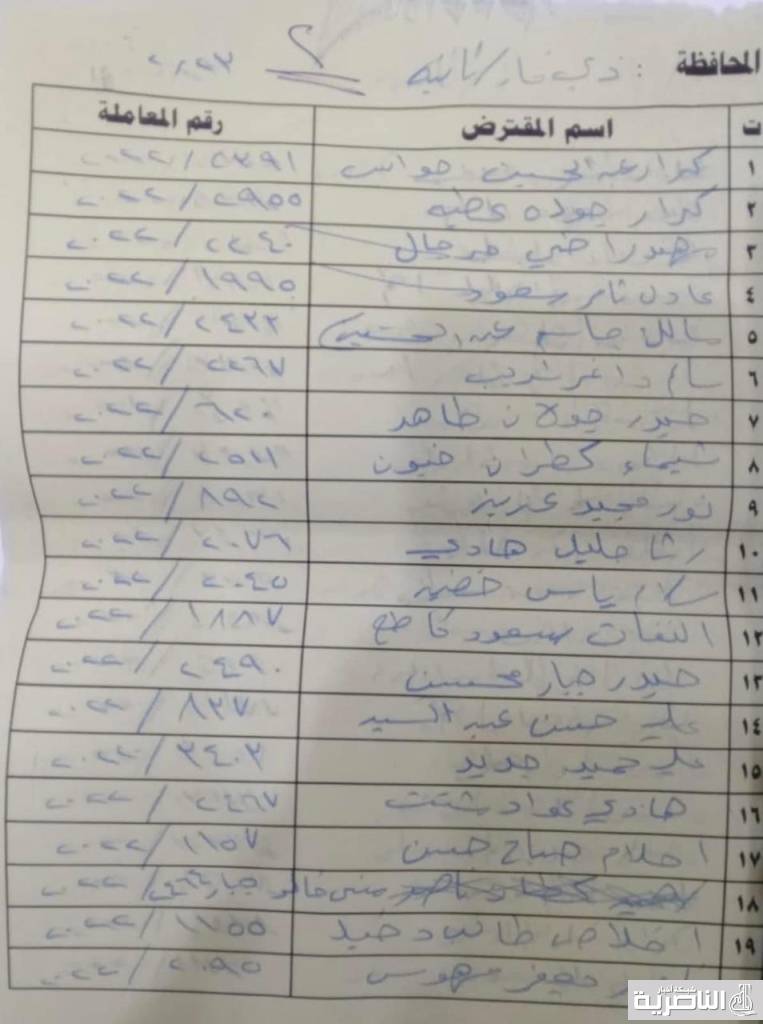 المحافظة : ذي قار / ثانية ٢ ٢٠٢٣
ت اسم المقترض رقم المعاملة
١ كرار عبد الحسين جواس ٢٠٢٢/٥٣٩١
٢ كرار جوده عطيه ٢٠٢٢/٢٩٥٥
٣ راضي ٢٠٢٢/٢٢٤٠
٤ عادل ثامر سعود ٢٠٢٢/١٩٩٥
٥ مالك جاسم عبد الحسين ٢٠٢٢/٢٤٣٢
٦ سالم داغر ٢٠٢٢/٢٢٦٧
٧ حيدر جولان طاهر ٢٠٢٢/٦٢٠
٨ شيماء كطران خيون ٢٠٢٢/٢٥١١
٩ نور مجيد عزيز ٢٠٢٢/٨٩٢
١٠ رشا خليل هادي ٢٠٢٢/٢٠٧٦
١١ سلام ياس خضير ٢٠٢٢/٢٠٤٥
١٢ التفات سعود كاطع ٢٠٢٢/١٨٨٧
١٣ حيدر جبار محسن ٢٠٢٢/٢٤٩٠
١٤ علي حسن عبد السيد ٢٠٢٢/٨٣٧
١٥ علي حميد جديد ٢٠٢٢/٣٤٠٣
١٦ هادي عواد شتت ٢٠٢٢/٢٤٦٧
١٧ احلام صباح حسن ٢٠٢٢/١١٥٧
١٨ منى جبار ٢٠٢٢/
١٩ اخلاص طالب دخيل ٢٠٢٢/١٧٥٥
جعفر مهوس ٢٠٢٢/٢٠٩٥
شبكة أخبار
الناصرية